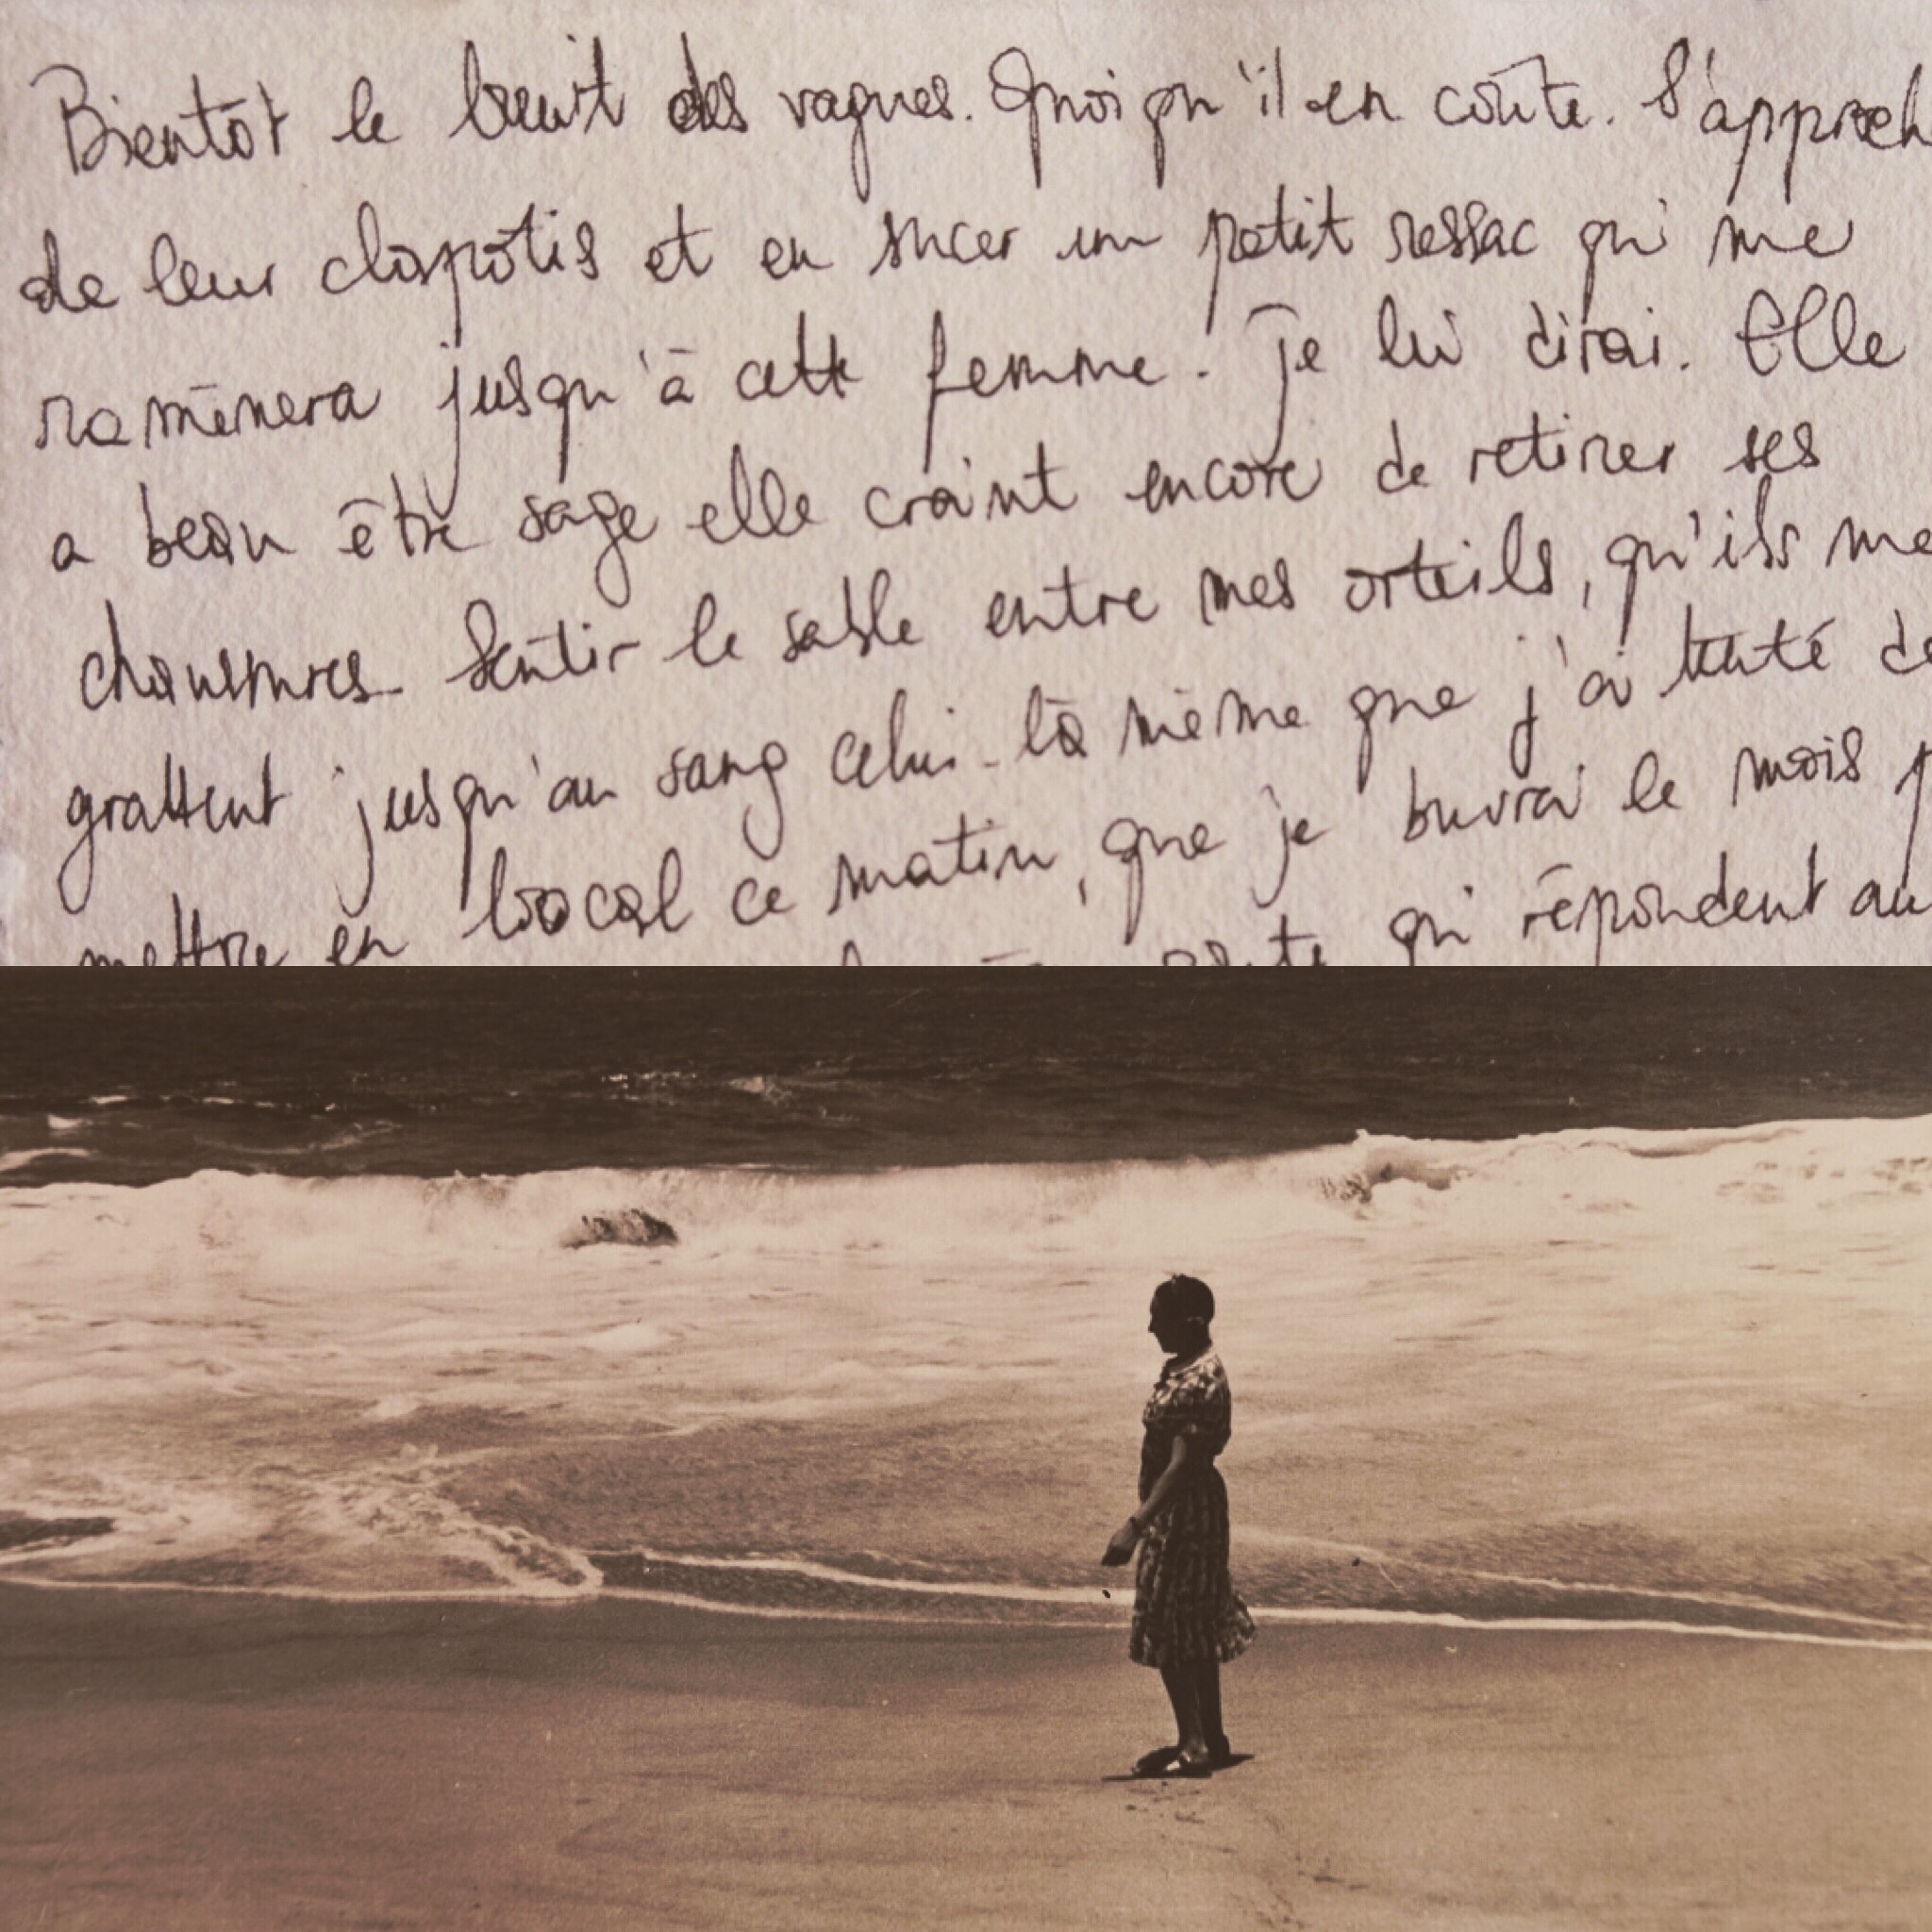 Bientôt le bruit des vagues. Quoiqu'il en coûte. S'approch
de leur clapotis et en sucer un petit ressac qui me
ramènera jusqu'à cette femme. Je lui dirai. Elle
a beau être sage elle craint encore de retirer ses
chaussures. Sentir le sable entre mes orteils, qu'ils me
grattent jusqu'au sang celui-là même que j'ai tenté de
mettre en bocal ce matin, que je buvrai le mois p
qui répondent au